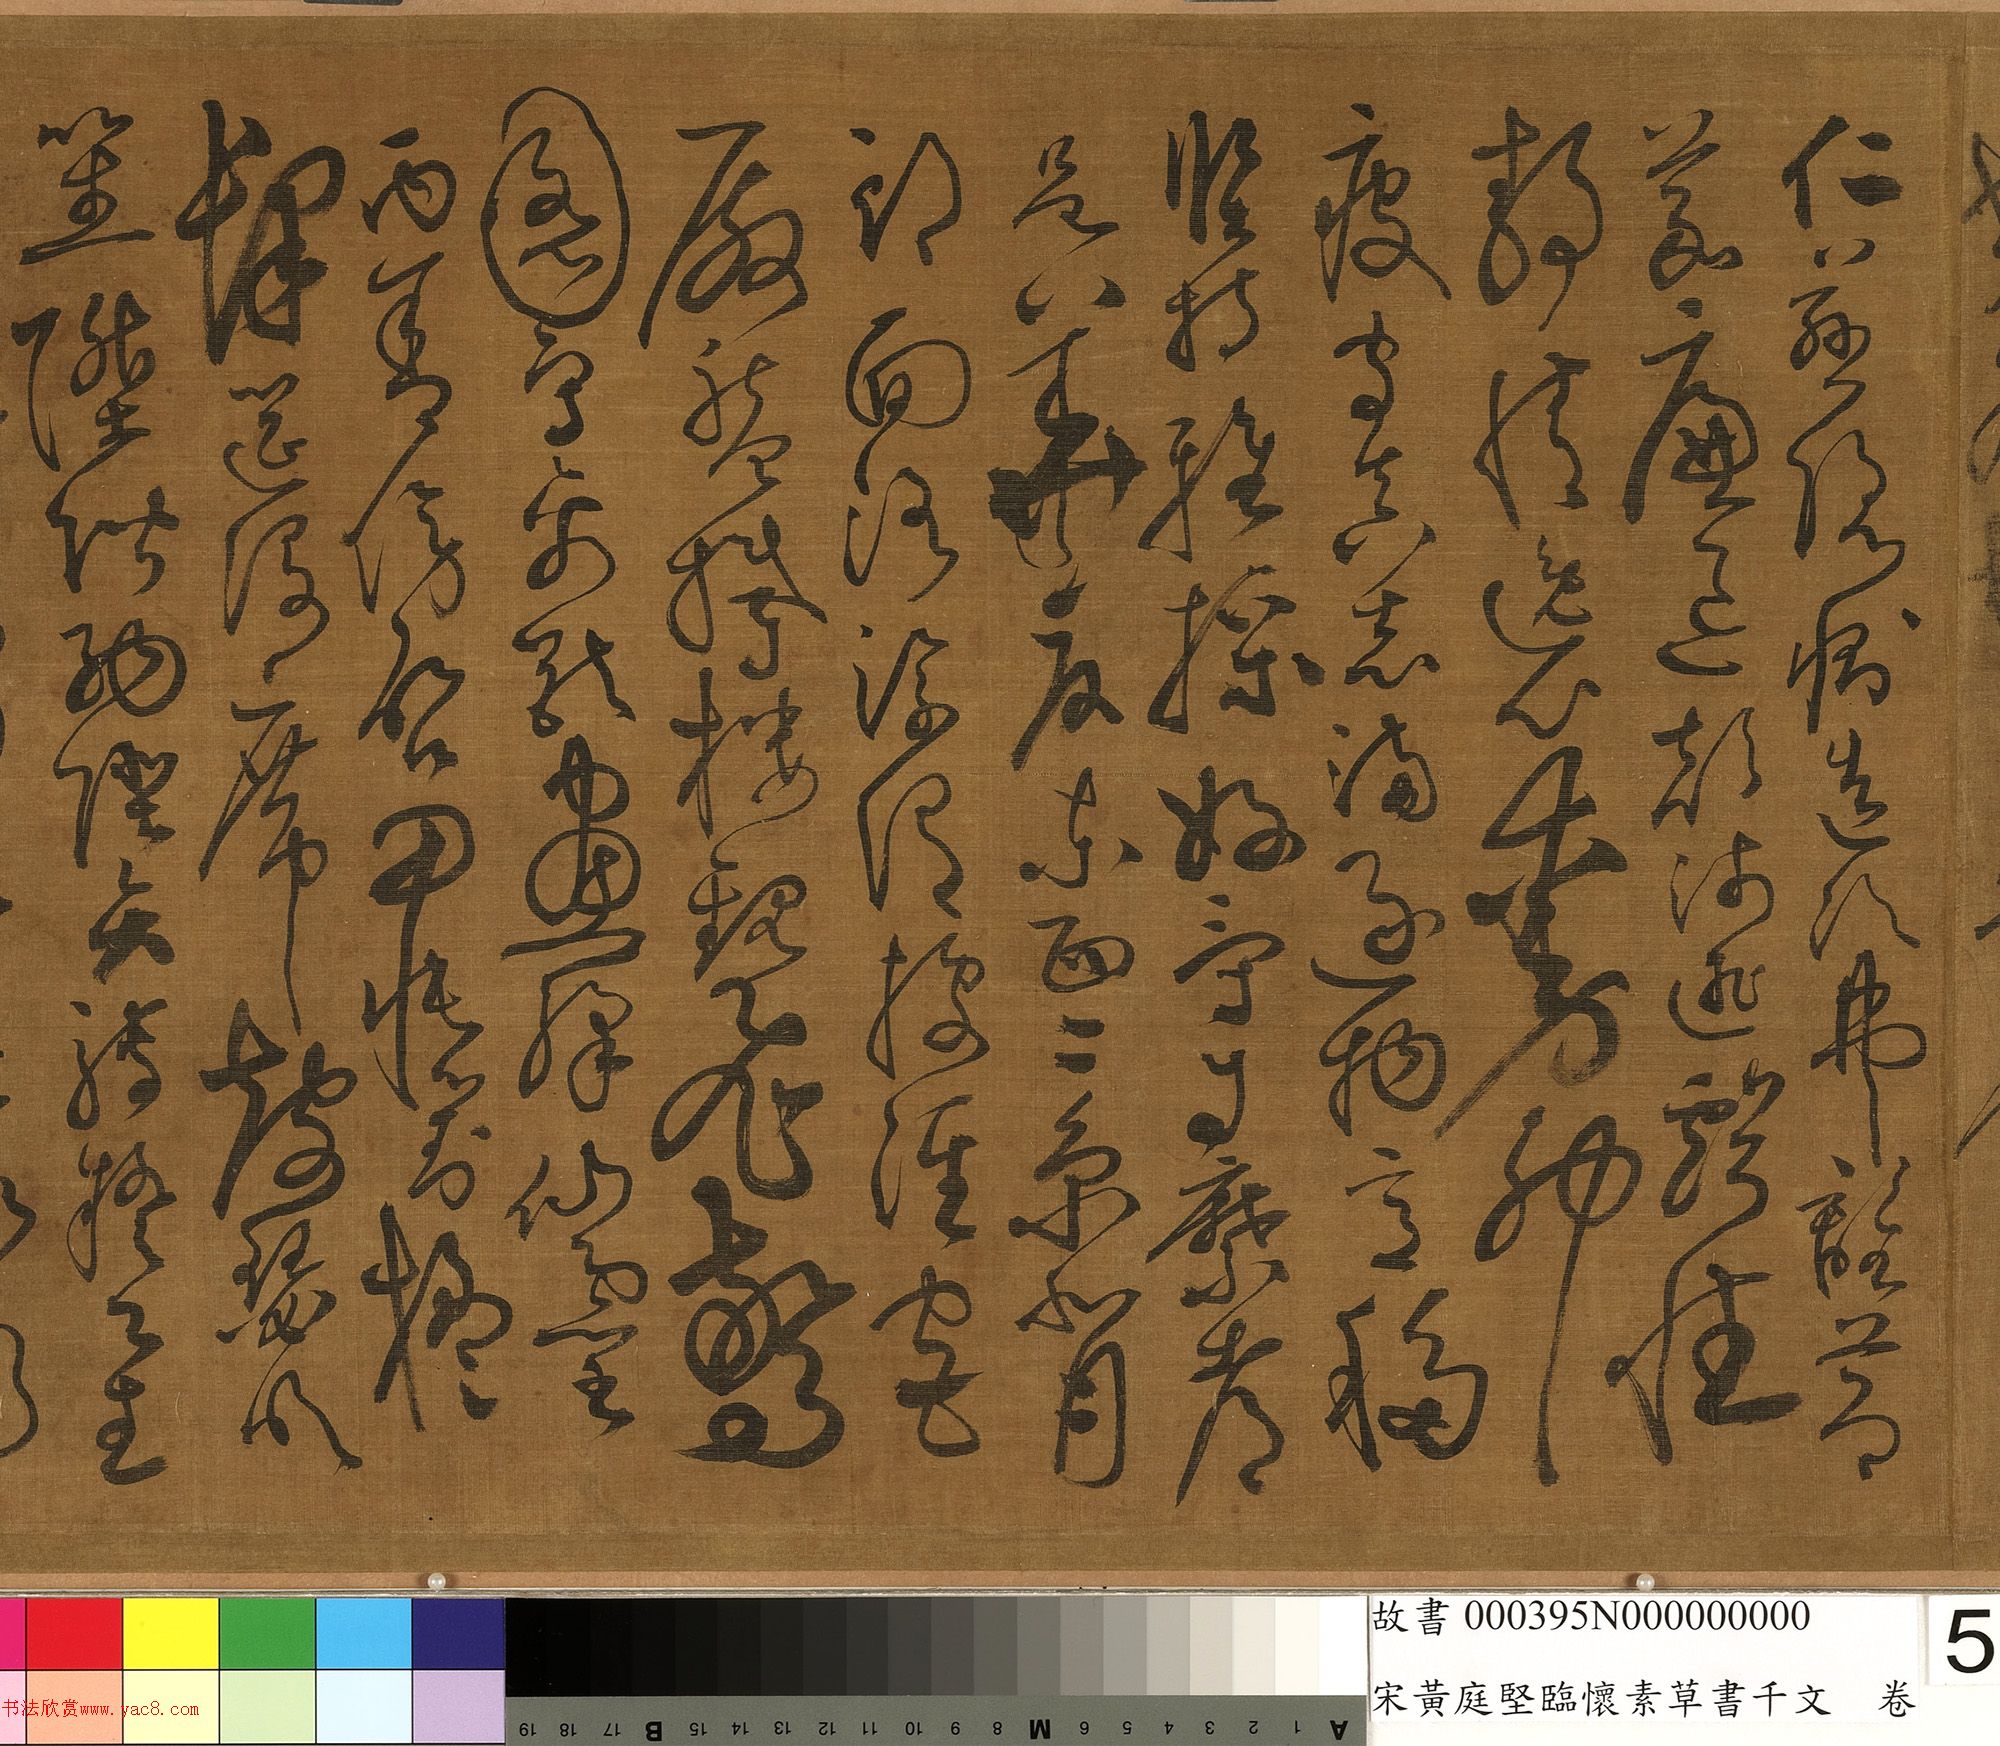 仁慈隱惻造次弗離節
義廉退顛沛匪虧性
靜情逸心動神
疲守真志滿逐物意移
堅持雅操好爵自縻都
邑華夏東西二京背
邙面洛浮渭據涇宮
殿盤鬱樓觀飛驚
圖寫禽獸畫彩仙靈
丙舍傍啟甲帳對楹
肆筵設席鼓瑟吹
笙陞階納陛弁轉疑星
故書 000395N000000000
宋黃庭堅臨懷素草書千文 卷
5
书法欣赏www.yac8.com
19 18 17 B 15 14 13 12 11 10 9 8 M 6 5 4 3 2 1 A